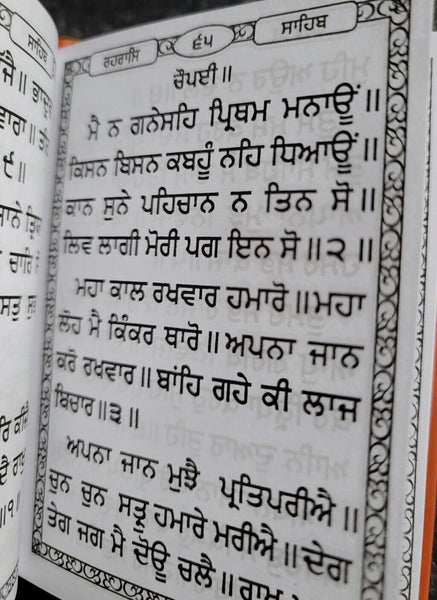 ਰਹਰਾਸਿ ੬੫ ਸਾਹਿਬ
ਚੌਪਈ॥
ਮੈ ਨ ਗਨੇਸਹਿ ਪ੍ਰਿਥਮ ਮਨਾਊਂ॥
ਕਿਸਨ ਬਿਸਨ ਕਬਹੂੰ ਨਹਿ ਧਿਆਊਂ॥
ਕਾਨ ਸੁਨੇ ਪਹਿਚਾਨ ਨ ਤਿਨ ਸੋ॥
ਲਿਵ ਲਾਗੀ ਮੋਰੀ ਪਗ ਇਨ ਸੋ॥੨॥
ਮਹਾ ਕਾਲ ਰਖਵਾਰ ਹਮਾਰੋ॥ਮਹਾ
ਲੋਹ ਮੈ ਕਿੰਕਰ ਥਾਰੋ॥ਅਪਨਾ ਜਾਨ
ਕਰੋ ਰਖਵਾਰ॥ਬਾਂਹਿ ਗਹੇ ਕੀ ਲਾਜ
ਬਿਚਾਰ॥੩॥
ਅਪਨਾ ਜਾਨ ਮੁਝੈ ਪ੍ਰਤਿਪਰੀਐ॥
ਚੁਨ ਚੁਨ ਸਤ੍ਰੂ ਹਮਾਰੇ ਮਰੀਐ॥ਦੇਗ
ਤੇਗ ਜਗ ਮੈ ਦੋਊ ਚਲੈ॥